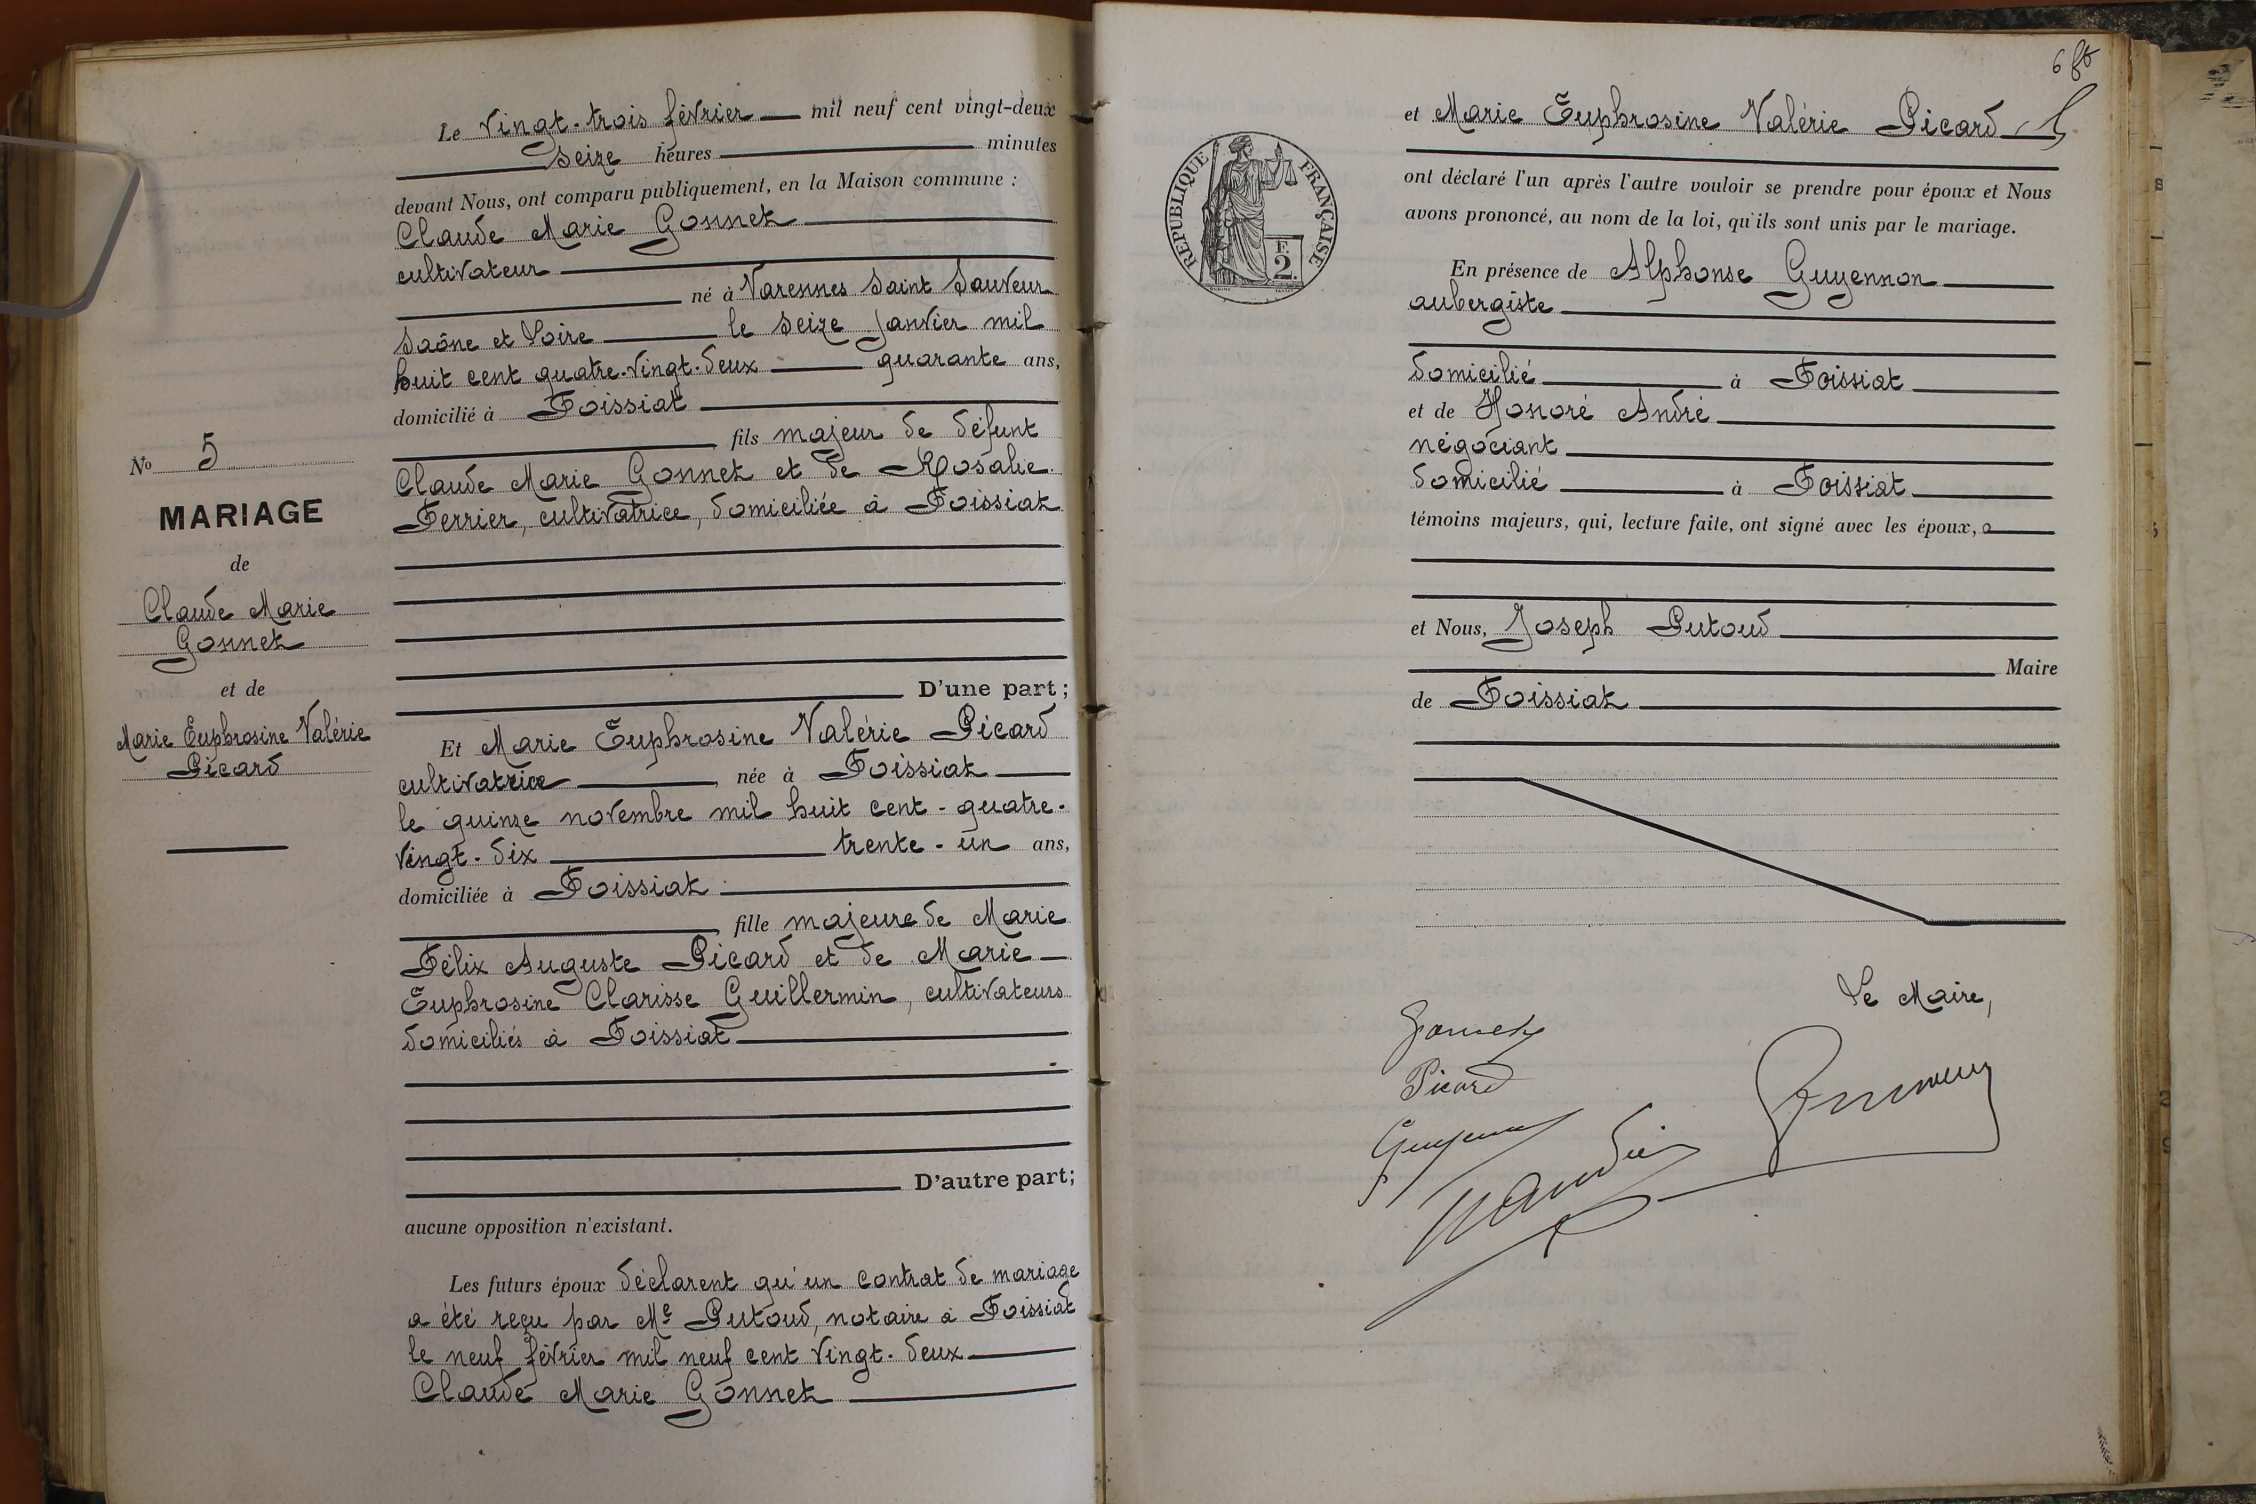 Le vingt-trois février mil neuf cent vingt-deux
seize heures minutes
devant Nous, ont comparu publiquement, en la Maison commune :
Claude Marie Gonnet
cultivateur
né à Varennes Saint Sauveur
Saône et Loire le seize Janvier mil
huit cent quatre-vingt-deux quarante ans,
domicilié à Foissiat
fils majeur de défunt
Claude Marie Gonnet et de Rosalie
Ferrier, cultivatrice, domiciliée à Foissiat
D'une part ;
No 5
MARIAGE
de
Claude Marie
Gonnet
et de
Marie Euphrosine Valérie
Picard
Et Marie Euphrosine Valérie Picard
cultivatrice, née à Foissiat
le quinze novembre mil huit cent-quatre-
vingt-dix trente-un ans,
domiciliée à Foissiat
fille majeure de Marie
Félix Auguste Picard et de Marie
Euphrosine Clarisse Guillermin, cultivateurs
domiciliés à Foissiat
D'autre part ;
aucune opposition n'existant.
Les futurs époux déclarent qu'un contrat de mariage
a été reçu par Me Putoud, notaire à Foissiat
le neuf février mil neuf cent vingt-deux
Claude Marie Gonnet
et Marie Euphrosine Valérie Picard
ont déclaré l'un après l'autre vouloir se prendre pour époux et Nous
avons prononcé, au nom de la loi, qu'ils sont unis par le mariage.
RÉPUBLIQUE FRANÇAISE
F.
2.
En présence de Alphonse Guyennon
aubergiste
domicilié à Foissiat
et de Honoré André
négociant
domicilié à Foissiat
témoins majeurs, qui, lecture faite, ont signé avec les époux,
et Nous, Joseph Putoud
Maire
de Foissiat
Le Maire,
Gonnet
Picard